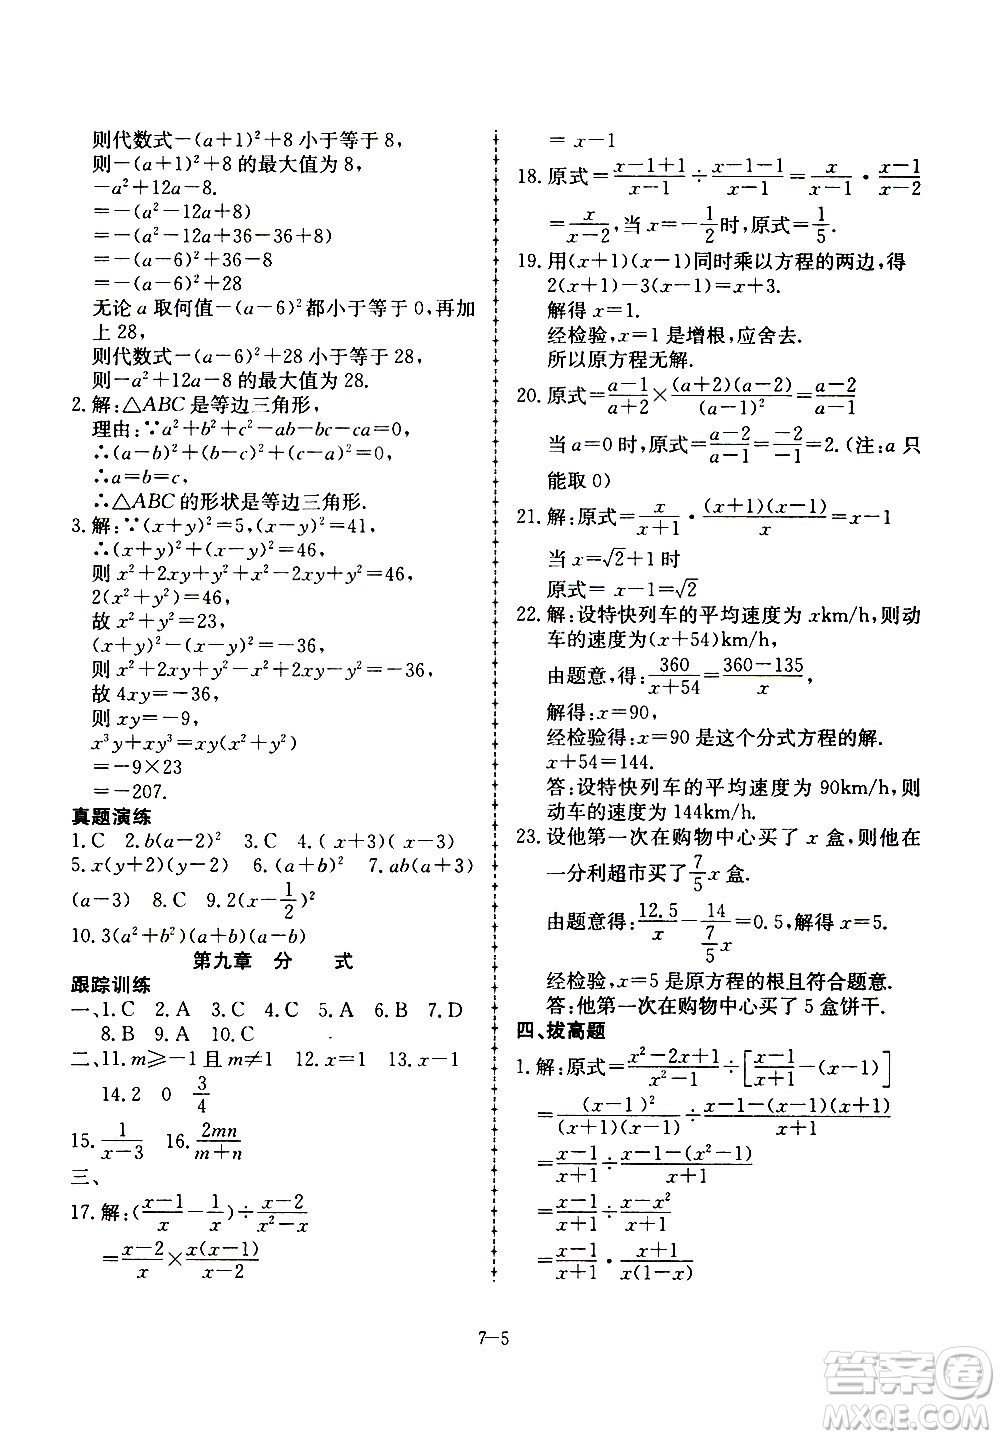 则代数式－(a＋1)²＋8小于等于8,
则－(a＋1)²＋8的最大值为8,
－a²＋12a－8.
＝－(a²－12a＋8)
＝－(a²－12a＋36－36＋8)
＝－(a－6)²＋36－8
＝－(a－6)²＋28
无论a取何值－(a－6)²都小于等于0,再加
上28,
则代数式－(a－6)²＋28小于等于28,
则－a²＋12a－8的最大值为28.
2.解:△ABC是等边三角形,
理由:∵a²＋b²＋c²－ab－bc－ca＝0,
∴(a－b)²＋(b－c)²＋(c－a)²＝0,
∴a＝b＝c,
∴△ABC的形状是等边三角形.
3.解:∵(x＋y)²＝5,(x－y)²＝41,
∴(x＋y)²＋(x－y)²＝46,
则x²＋2xy＋y²＋x²－2xy＋y²＝46,
2(x²＋y²)＝46,
故x²＋y²＝23,
(x＋y)²－(x－y)²＝－36,
则x²＋2xy＋y²－x²＋2xy－y²＝－36,
故4xy＝－36,
则xy＝－9,
x³y＋xy³＝xy(x²＋y²)
＝－9×23
＝－207.
真题演练
1.C 2.b(a－2)² 3.C 4.(x＋3)(x－3)
5.x(y＋2)(y－2) 6.(a＋b)² 7.ab(a＋3)
(a－3) 8.C 9.2(x－1/2)²
10.3(a²＋b²)(a＋b)(a－b)
第九章 分 式
跟踪训练
一、1.C 2.A 3.C 4.C 5.A 6.B 7.D
8.B 9.A 10.C
二、11.m≥－1且m≠1 12.x＝1 13.x－1
14.2 0 3/4
15.1/(x－3) 16.2mn/(m＋n)
三、
17.解:((x－1)/x－1/x)÷(x－2)/(x²－x)
＝(x－2)/x×x(x－1)/(x－2)
＝x－1
18.原式＝(x－1＋1)/(x－1)÷(x－1－1)/(x－1)＝x/(x－1)·(x－1)/(x－2)
＝x/(x－2),当x＝－1/2时,原式＝1/5.
19.用(x＋1)(x－1)同时乘以方程的两边,得
2(x＋1)－3(x－1)＝x＋3.
解得x＝1.
经检验,x＝1是增根,应舍去.
所以原方程无解.
20.原式＝(a－1)/(a＋2)×(a＋2)(a－2)/(a－1)²＝(a－2)/(a－1)
当a＝0时,原式＝(a－2)/(a－1)＝－2/－1＝2.(注:a只
能取0)
21.解:原式＝x/(x＋1)·(x＋1)(x－1)/x＝x－1
当x＝√2＋1时
原式＝x－1＝√2
22.解:设特快列车的平均速度为xkm/h,则动
车的速度为(x＋54)km/h,
由题意,得:360/(x＋54)＝(360－135)/x,
解得:x＝90,
经检验得:x＝90是这个分式方程的解.
x＋54＝144.
答:设特快列车的平均速度为90km/h,则
动车的速度为144km/h.
23.设他第一次在购物中心买了x盒,则他在
一分利超市买了7/5x盒.
由题意得:12.5/x－14/(7/5x)＝0.5,x＝5.
经检验,x＝5是原方程的根且符合题意.
答:他第一次在购物中心买了5盒饼干.
四、拔高题
1.解:原式＝(x²－2x＋1)/(x²－1)÷[(x－1)/(x＋1)－(x－1)]
＝(x－1)²/(x＋1)(x－1)÷(x－1－(x－1)(x＋1))/(x＋1)
＝(x－1)/(x＋1)÷(x－1－(x²－1))/(x＋1)
＝(x－1)/(x＋1)÷(x－x²)/(x＋1)
＝(x－1)/(x＋1)·(x＋1)/x(1－x)
7－5
答案圈
MXQE.COM